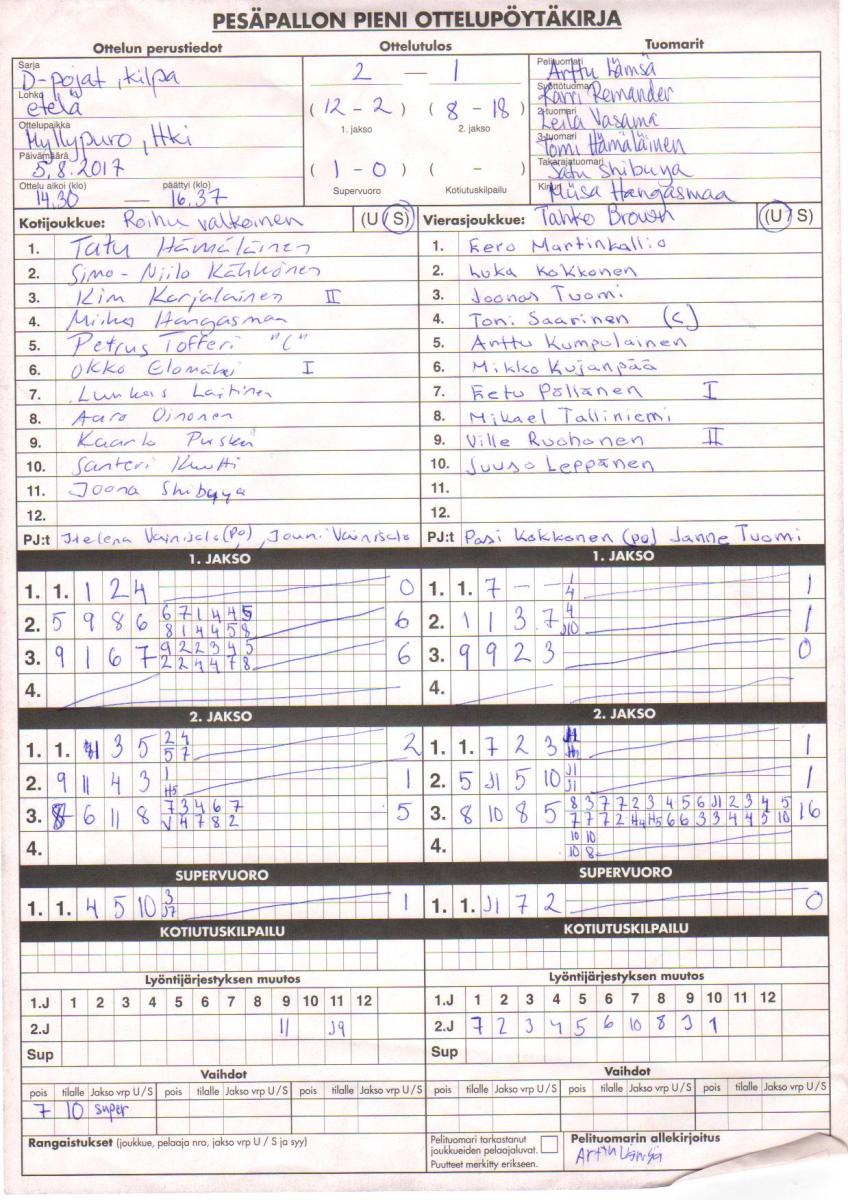 PESÄPALLON PIENI OTTELUPÖYTÄKIRJA
Ottelun perustiedot Ottelutulos Tuomarit
Sarja
D-pojat, kilpa
Lohko
etelä
Ottelupaikka
Myllypuro, Hki
Päivämäärä
5.8.2017
Ottelu alkoi (klo) päättyi (klo)
14.30 — 16.37
2 — 1
( 12 - 2 ) ( 8 - 18 )
1. jakso 2. jakso
( 1 - 0 ) ( - )
Supervuoro Kotiutuskilpailu
Pelituomari
Arttu Lämsä
Syöttötuomari
Karri Remander
2-tuomari
Leila Vasama
3-tuomari
Tomi Hämäläinen
Takarajatuomari
Satu Shibuya
Kirjuri
Miisa Hangasmaa
Kotijoukkue: Roihu valkoinen (U / S)
1. Tatu Hämäläinen
2. Simo-Niilo Kähkönen
3. Kim Karjalainen II
4. Miika Hangasmaa
5. Petrus Tofferi "C"
6. Okko Elomäki I
7. Luukas Laitinen
8. Aaro Oinonen
9. Kaarlo Puska
10. Santeri Kuutti
11. Joona Shibuya
12.
PJ:t Helena Vainisalo (po), Jouni Vainisalo
Vierasjoukkue: Tahko Brown (U / S)
1. Eero Martinkallio
2. Luka Kokkonen
3. Joonas Tuomi
4. Toni Saarinen (C)
5. Arttu Kumpulainen
6. Mikko Kujanpää
7. Eetu Pöllänen I
8. Mikael Talliniemi
9. Ville Ruohonen II
10. Juuso Leppänen
11.
12.
PJ:t Pasi Kokkonen (po) Janne Tuomi
1. JAKSO
1. 1. 1 2 4 0
2. 5 9 8 6 6 7 1 4 4 5 6
8 1 4 4 5 8
3. 9 1 6 7 9 2 2 3 4 5 6
2 2 4 4 7 8
4.
1. JAKSO
1. 1. 7 - - 1 1
4
2. 1 1 3 7 4 1
J10
3. 9 9 2 3 0
4.
2. JAKSO
1. 1. 3 5 2 4 2
5 7
2. 9 11 4 3 1 1
H5
3. 6 11 8 7 3 4 6 7 5
4 7 8 2
4.
2. JAKSO
1. 1. 7 2 3 1
2. 5 J1 5 10 J1 1
J1
3. 8 10 8 5 8 3 7 7 2 3 4 5 6 J1 2 3 4 5 16
7 7 7 2 H4 H5 6 6 3 3 4 4 5 10
4. 10 10
10 8
SUPERVUORO
1. 1. 4 5 10 3 1
J7
SUPERVUORO
1. 1. J1 7 2 0
KOTIUTUSKILPAILU
KOTIUTUSKILPAILU
Lyöntijärjestyksen muutos
1.J 1 2 3 4 5 6 7 8 9 10 11 12
2.J 11 J9
Sup
Lyöntijärjestyksen muutos
1.J 1 2 3 4 5 6 7 8 9 10 11 12
2.J 7 2 3 4 5 6 10 8 9 1
Sup
Vaihdot
pois tilalle Jakso vrp U / S pois tilalle Jakso vrp U / S pois tilalle Jakso vrp U / S
7 10 super
Vaihdot
pois tilalle Jakso vrp U / S pois tilalle Jakso vrp U / S pois tilalle Jakso vrp U / S
Rangaistukset (joukkue, pelaaja nro, jakso vrp U / S ja syy)
Pelituomari tarkastanut
joukkueiden pelaajaluvat.
Puutteet merkitty erikseen.
Pelituomarin allekirjoitus
Arttu Lämsä